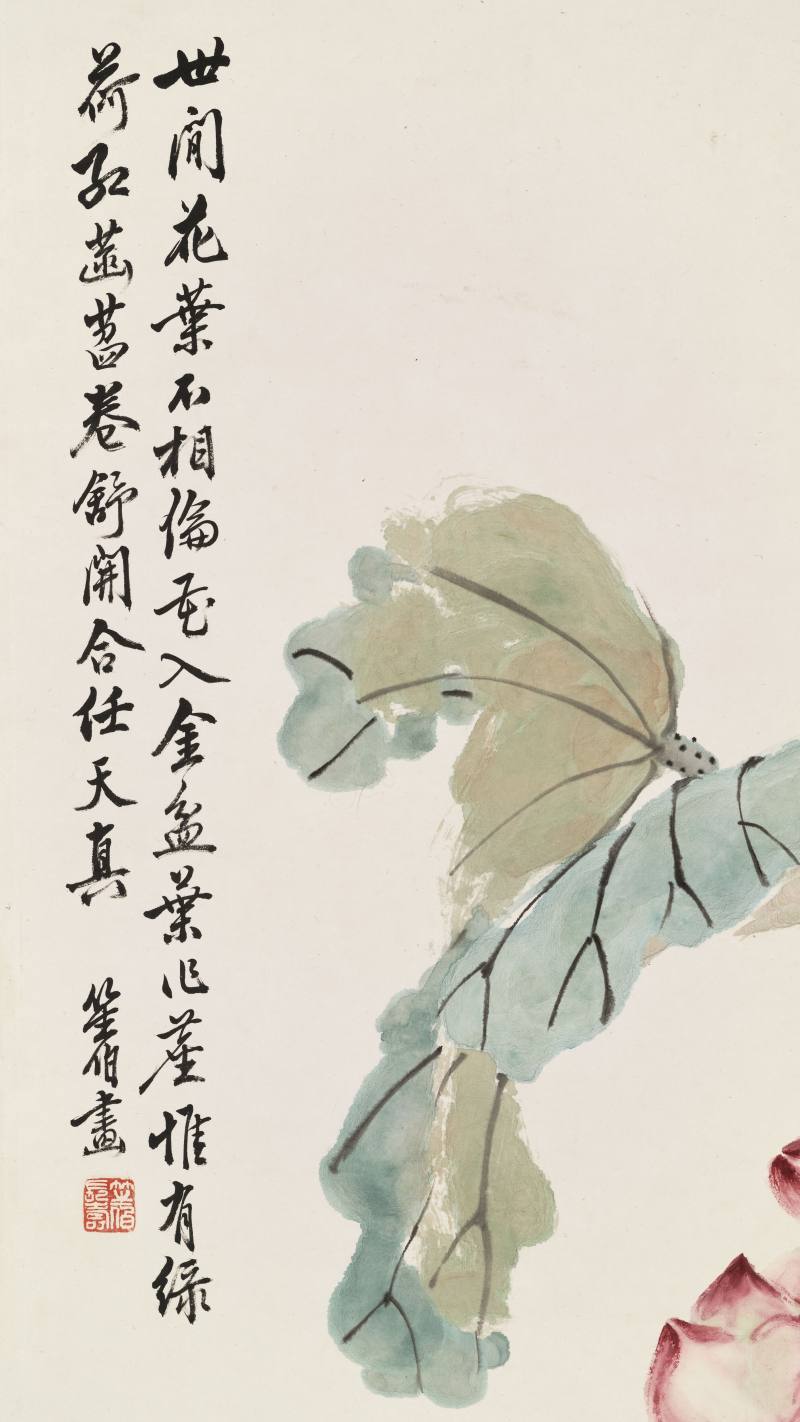 世間花葉不相倫花入金盆葉作塵惟有綠
荷紅菡萏卷舒開合任天真 伯畫
長壽